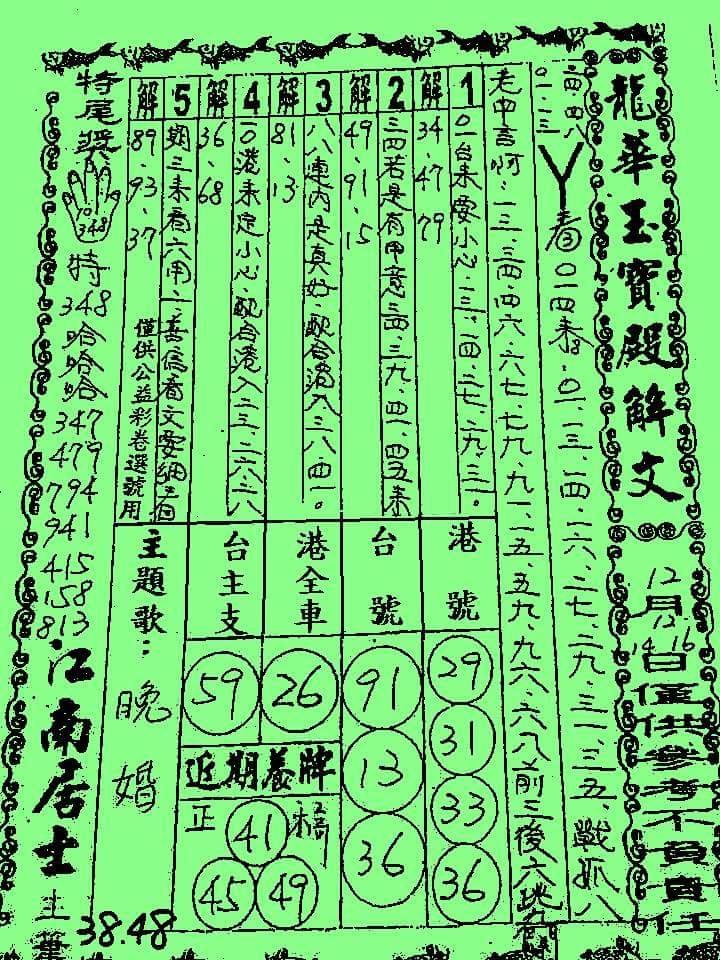 龍華玉寶殿解文
12月12 14 16日僅供參考不負責任
三四四八
0一.一三
丫看③0一四来8.0二.一三.一四.二六.二七.二九.三一.三五.戰抓八
老中言啊:一三.三四.四六.六七.七九.九一.一五.五九.九六八.六八八前三後六地
1
0一台来要小心.一三.一四.二七.二九.三一。
解
34.47.79
2
三四若是有甲意.三四.三九.四一.四五来
解
49.91.15
3
八八連內是真好.配合港入三八.四一。
解
81.13
4
一0港来定小心.配合港入二三.二六.二八
解
36.68
5
期三来看六用.一.善信看文要細看
解
89.93.37
僅供公益彩卷選號用
港號
29
31
33
36
台號
91
13
36
港全車
26
台主支
59
近期養牌
正
41
45
49
主題歌:
晚婚
特尾獎
348
特
348
哈哈哈
347
479
794
941
415
158
813
江南居士主筆
38.48